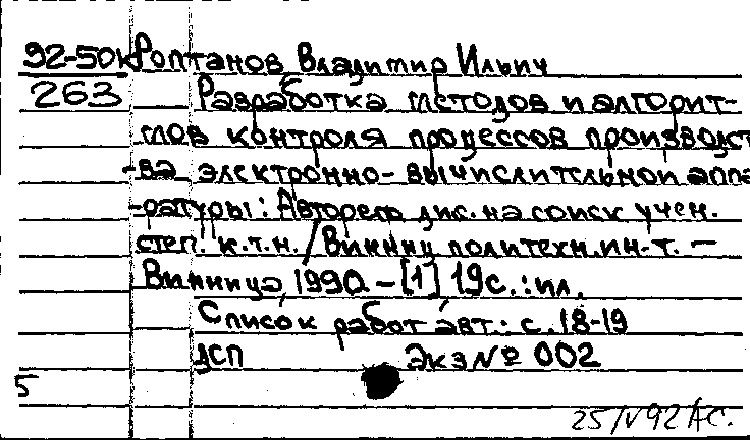 92-50к Роптанов Владимир Ильич
263 Разработка методов и алгорит-
мов контроля процессов производст
-ва электронно-вычислительной аппа
-ратуры: Автореф дис. на соиск учен.
степ. к.т.н. / Винниц политехн. ин-т. –
Винница, 1990. – [1], 19с. : ил.
Список работ авт: с. 18-19
ДСП Экз № 002
5
25/IV 92 АС.